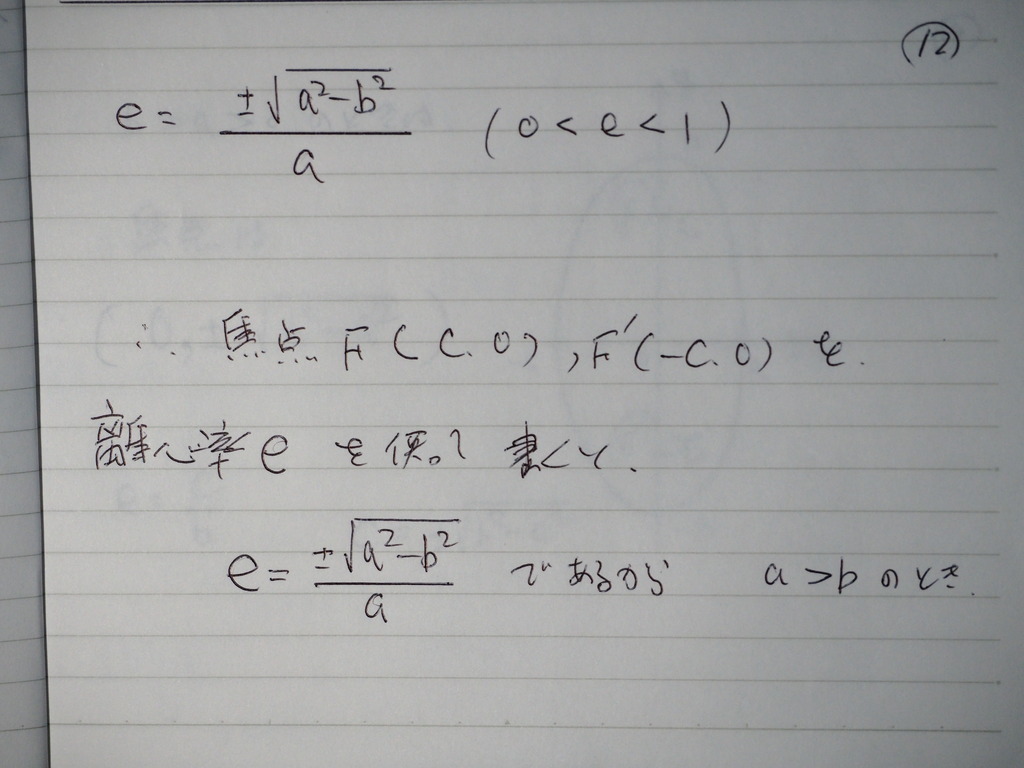 ⑫
e = ±√(a²-b²) / a (0 < e < 1)
∴ 焦点 F (C.0), F′(-C.0) を.
離心率 e を使って 書くと.
e = ±√(a²-b²) / a であるから a > b のとき.